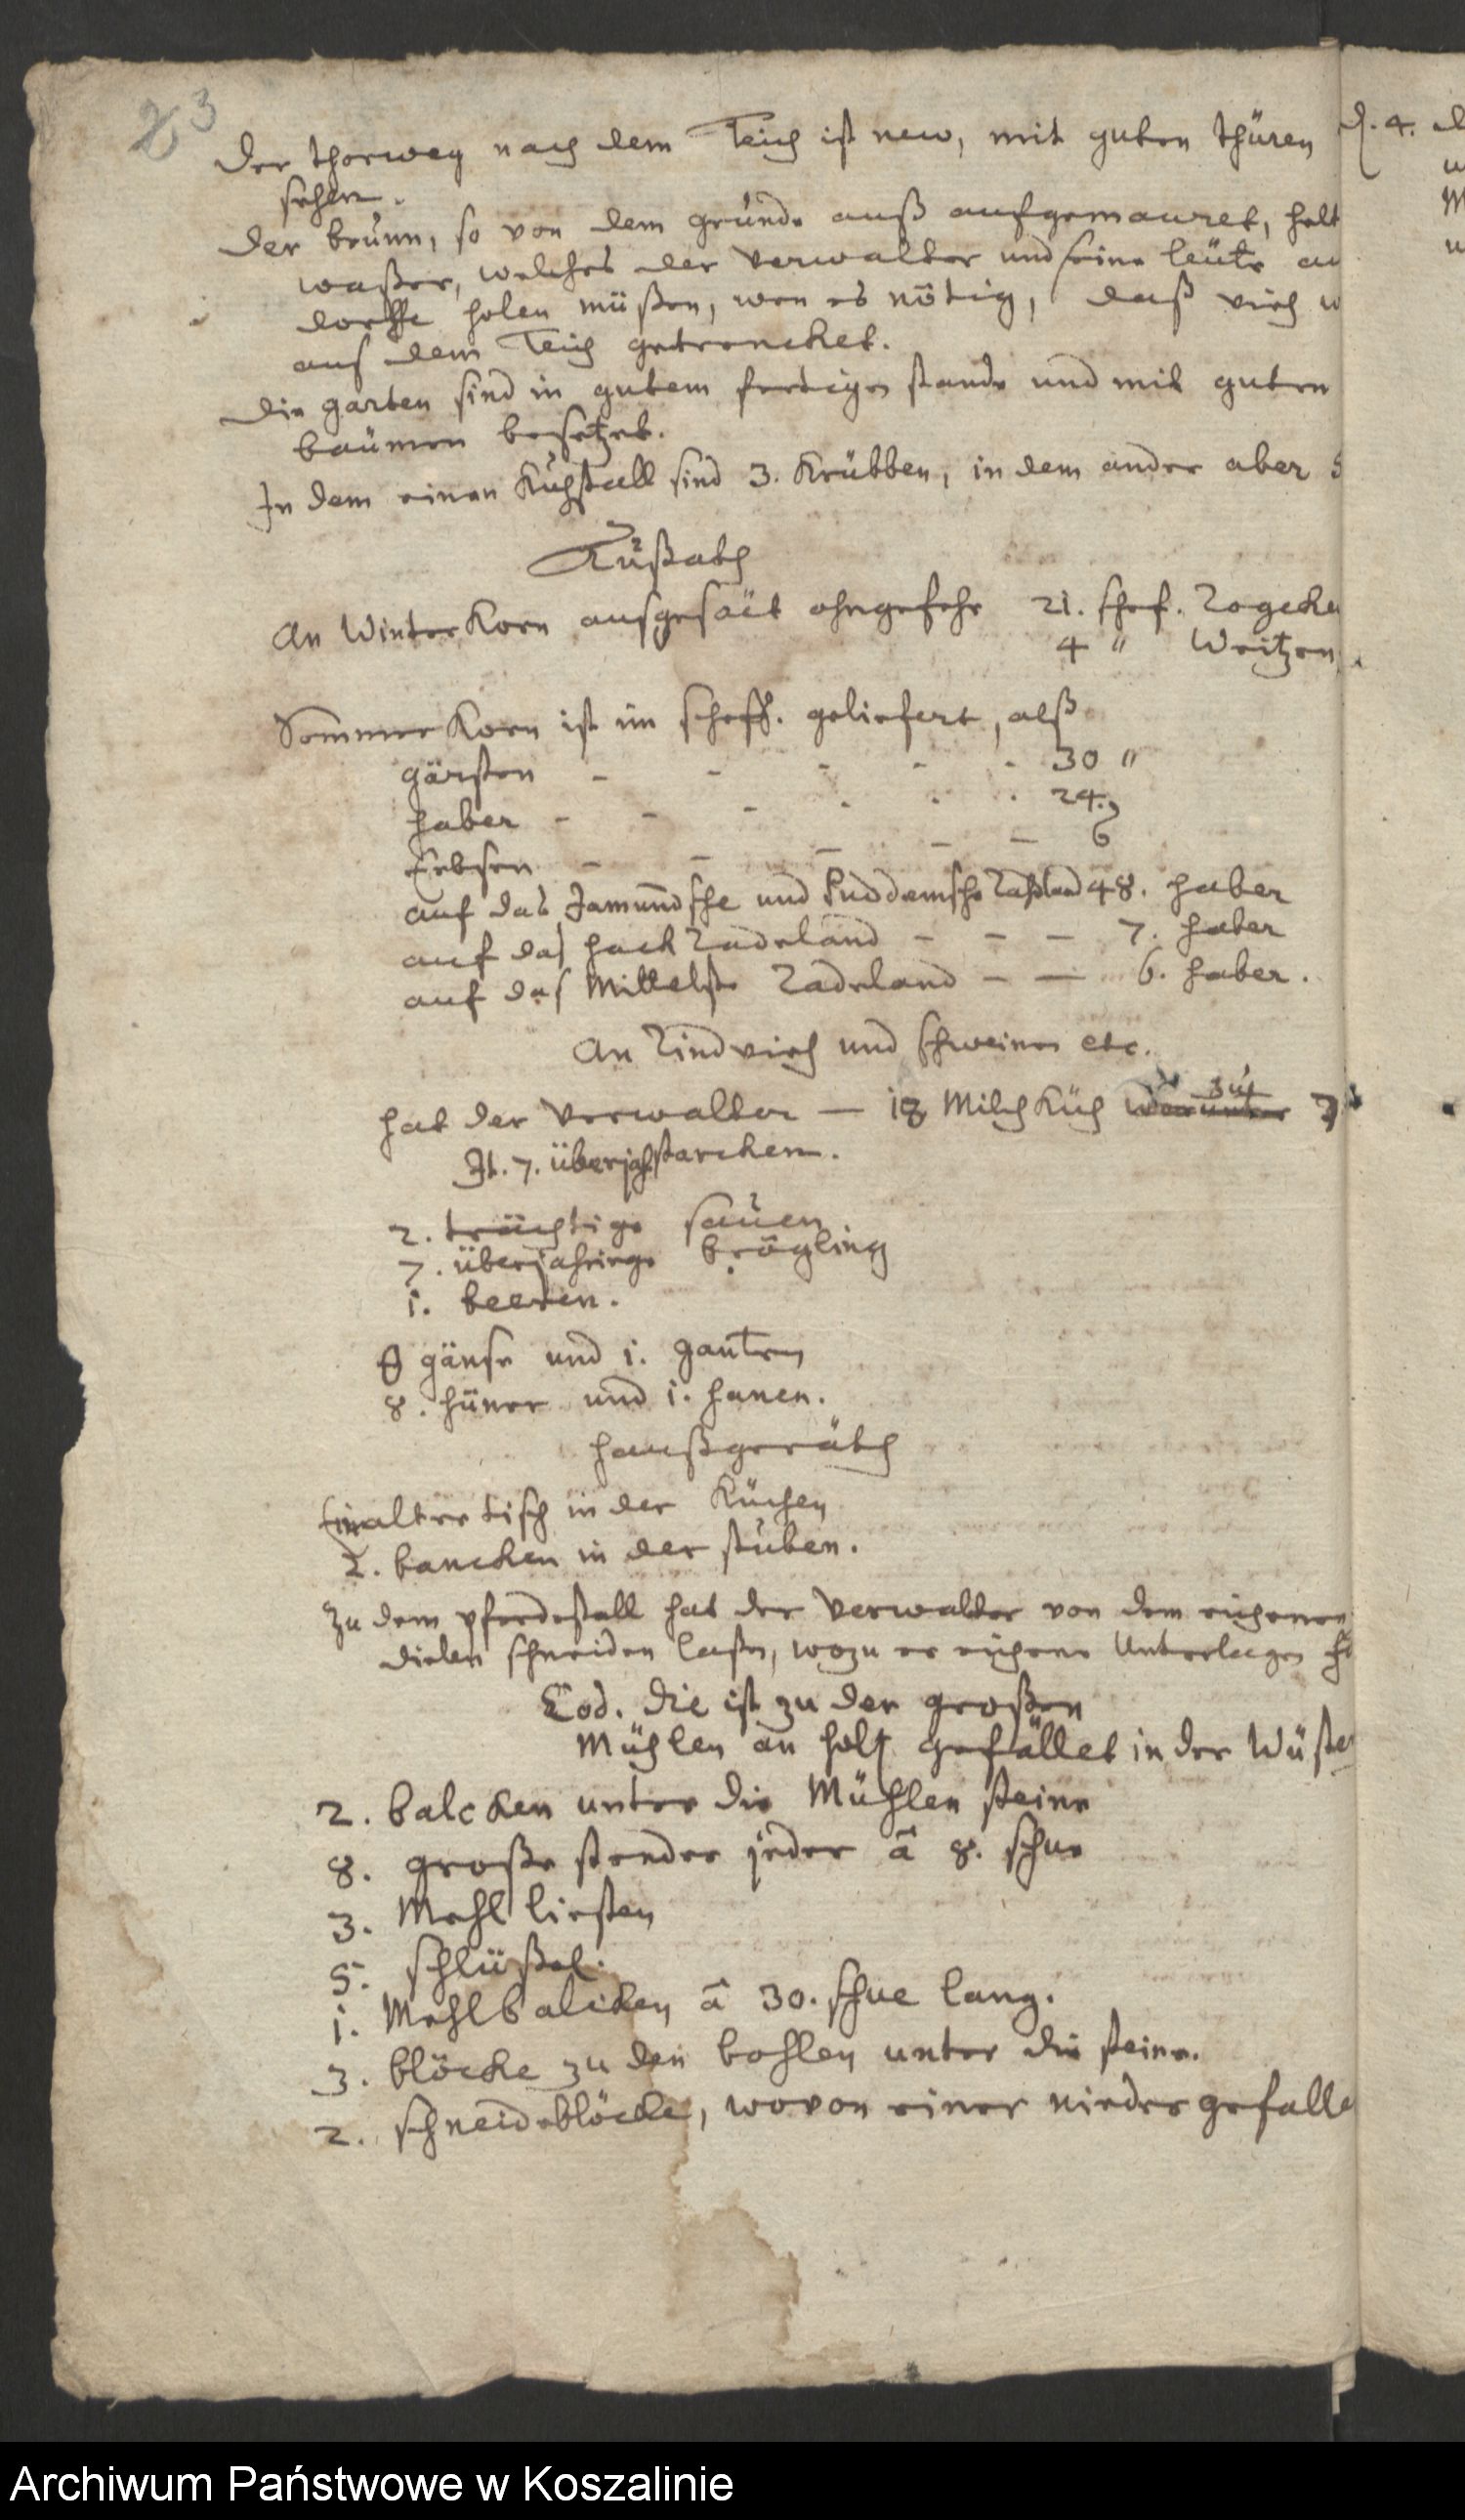 23
Der thorweg nach dem Teich ist new, mit guten thüren
sehen.
Der brunn, so von dem grunde auß aufgemauret, helt
waßer, welches der Verwalter und seine leute
dorffe holen müßen, wen es nötig, daß vieh
auß dem Teich getrencket.
Die garten sind in gutem fertigen stande und mit guten
baümen besetzet.
In dem einen Kuhstall sind 3. Krübben, in dem ander aber
Außath
An Winter Korn ausgesäet ohngefehr 21. schef. Rogcken
4 " Weitzen
Sommer Korn ist im scheff. geliefert, alß
gärsten - - - - - 30 "
haber - - - - - - 24.
Erbsen - - - - - 6
auf das Jamundsche und Puddemsche 48. haber
auf das hack Radeland - - - 7. haber
auf das Mittelste Radeland - - 6. haber.
An Rindvieh und schweinen etc.
hat der Verwalter — 18 Milch Küh worunter
It. 7. überjah. starcken.
2. trächtige sauen.
7. überjahrige brögling
1. beeren.
8 gänse und 1. ganten
8. hüner und 1. hanen.
haußgeräth
Ein alter tisch in der Küchen
2. bancken in der stuben.
Zu dem pferdestall hat der Verwalter von dem eichenen
dielen schneiden laßen, wozu er eichene Unterlagen
Eod. die ist zu der großen
Mühlen an holtz gefället in der Wüsten
2. balcken unter die Mühlen steine
8. große stender jeder â 8. schue
3. Mehl liesten
5. schlüßel.
1. Mehlbalcken â 30. schue lang.
3. blöcke zu den bohlen unter die steine.
2. schneideblöcke, wovon einer nieder gefalle
d. 4.
Archiwum Państwowe w Koszalinie